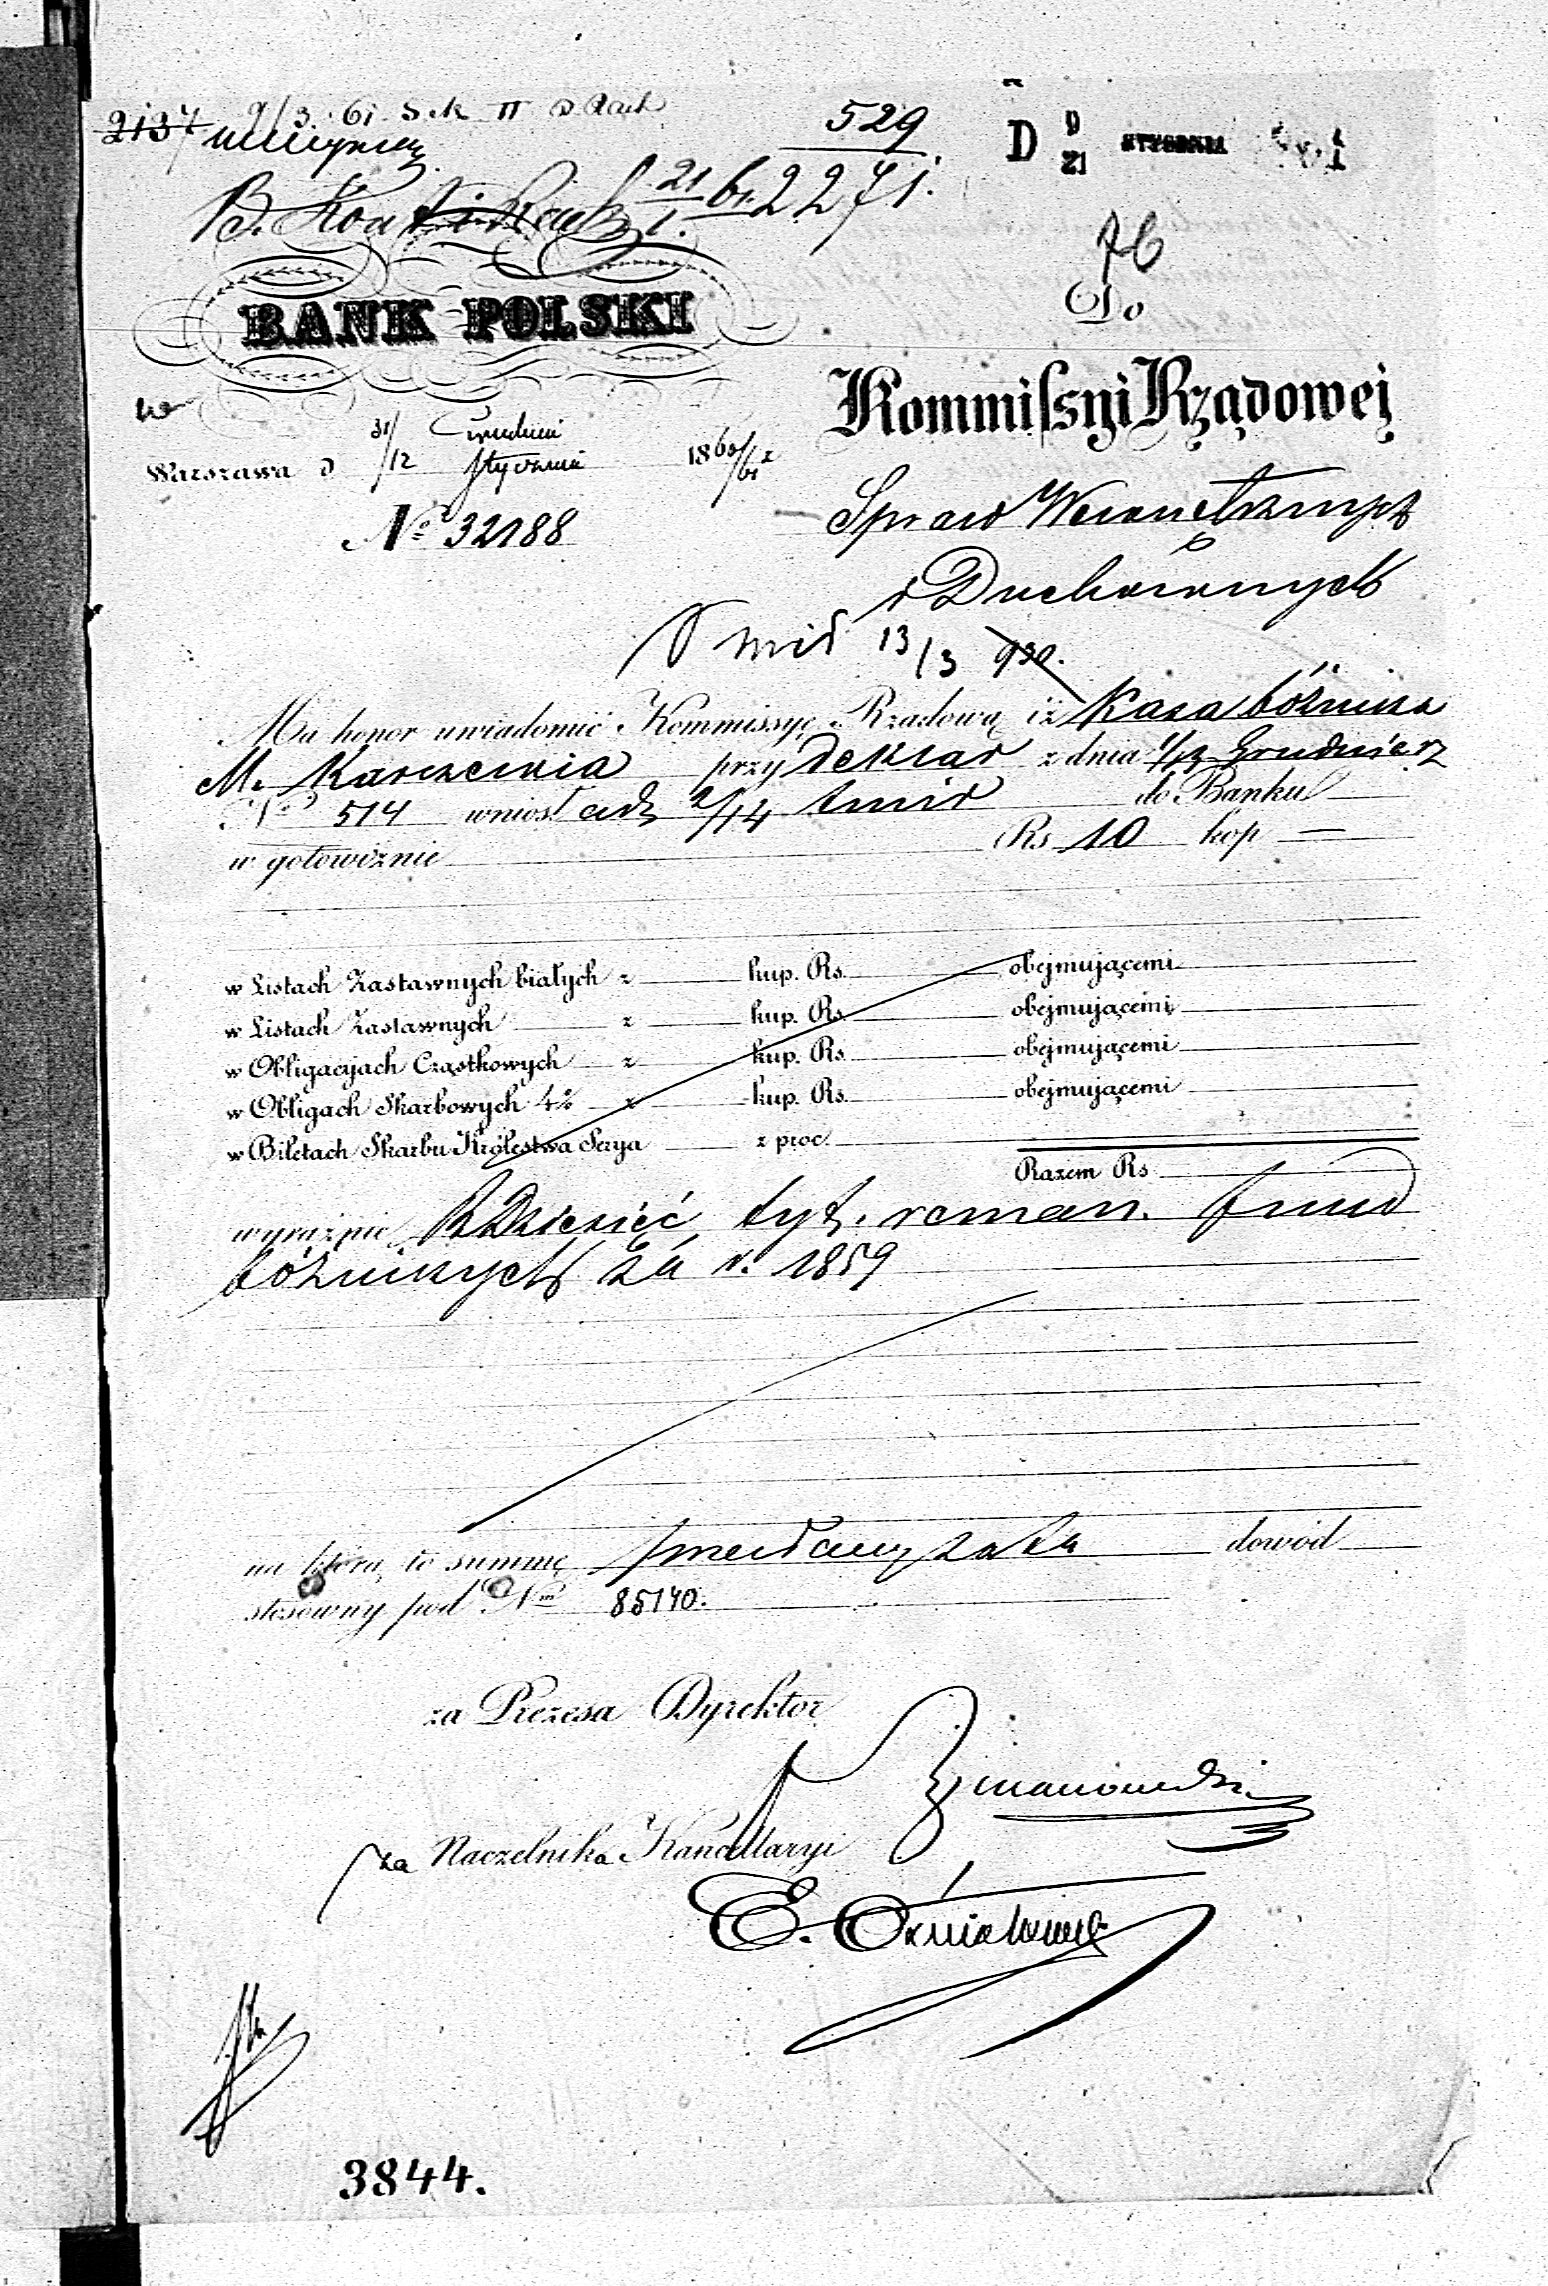 2137 9/3 61 Sek II
529
D 9/21 STYCZNIA
B. 21/1 61 2271.
76
BANK POLSKI
Do
Kommissyi Rządowej
w
Warszawa d 31/12 Grudnia Stycznia 1860/61 r
Spraw Wewnętrznych
No 32188
i Duchownych
13/3 930.
Ma honor uwiadomić Kommissyę Rządową iż Kasa bóżnicza
M. Karczewia przy deklar z dnia 1/13 Grudnia rz
No 514 wniosła d. 2/14 tmir do Banku
w gotowiźnie Rs 10 kop —
w Listach Zastawnych białych z kup. Rs. obejmującemi
w Listach Zastawnych z kup. Rs. obejmującemi
w Obligacyjach Cząstkowych z kup. Rs. obejmującemi
w Obligach Skarbowych 4% z kup. Rs. obejmującemi
w Biletach Skarbu Królestwa Serya z proc.
Razem Rs
wyraźnie R Dziesięć tyt. reman. fund
bóżniczych za r. 1859
na którą to summę dowód
stosowny pod Nm 85140.
za Prezesa Dyrektor
za Naczelnika Kancellaryi
E.
3844.